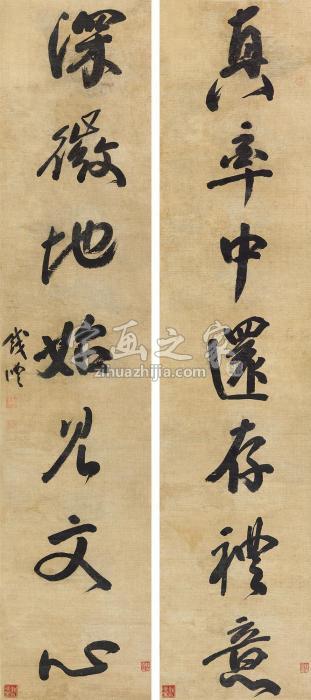 真率中還存禮意
深微地始見文心
錢灃
字画之家
zihuazhijia.com